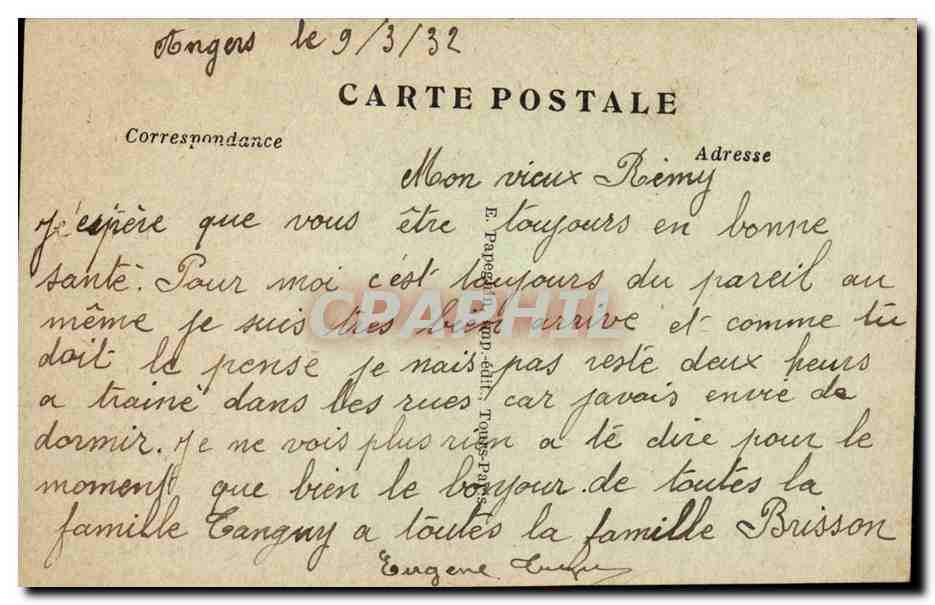 Angers le 9/3/32
CARTE POSTALE
Correspondance
Adresse
Mon vieux Rémy
J'espère que vous être toujours en bonne
santé. Pour moi c'est toujours du pareil au
même je suis très bien arrivé et comme tu
doit le pense je nais pas resté deux heurs
a trainé dans les rues car javais envie de
dormir. Je ne vois plus rien a té dire pour le
moment que bien le bonjour de toutes la
famille Tanguy a toutes la famille Brisson
Eugène
E. Papeghin, imp.-édit., Tours-Paris
CPARHIL